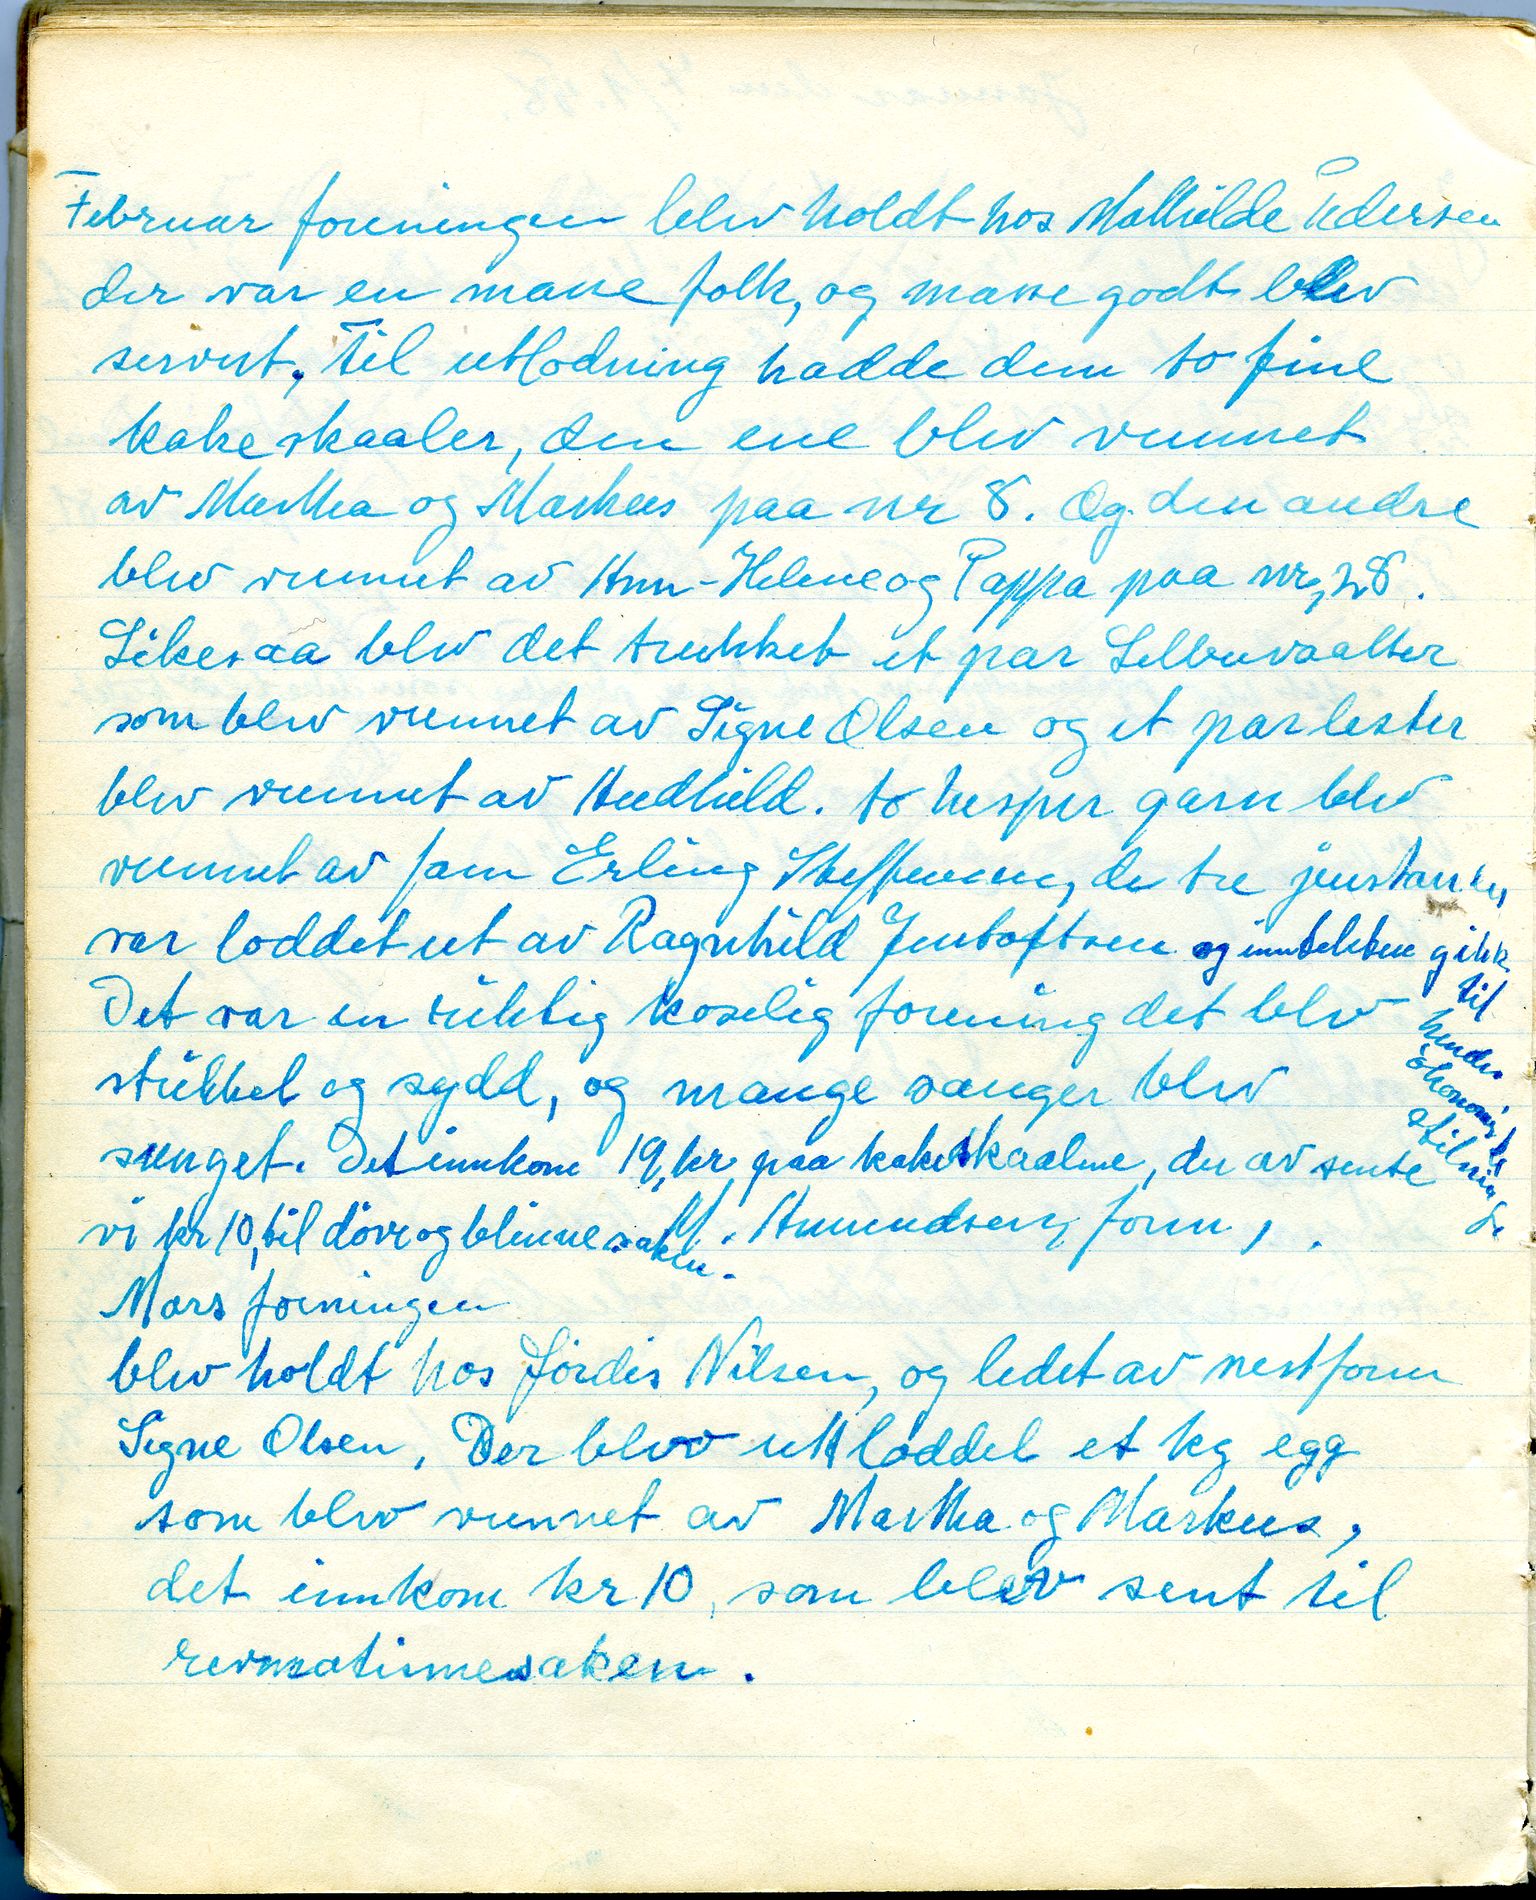 Februar foreningen blev holdt hos Mathilde Pedersen
der var en masse folk, og masse godt blev
servert, Til utlodning hadde dem to fine
kakeskaaler, den ene blev vunnet
av Martha og Markus paa nr 8. Og den andre
blev vunnet av Ann-Helene og Pappa paa nr, 28.
Likesaa blev det trukket et par Selbuvaatter
som blev vunnet av Signe Olsen og et par lester
blev vunnet av Audhild. to hesper garn blev
vunnet av fam Erling Steffensen, de tre
var loddet ut av Ragnhild Jentoftsen og inntekten gikk
til
hendes
økonomiske
stilning
Det var en riktig koselig forening det blev
strikket og sydd, og mange sanger blev
sunget. Det innkom 19, kr paa kakeskaalene, der av sente
vi kr 10, til døve og blinne saken. M. Amundsen, form,
Mars foreningen
blev holdt hos Jordis Nilsen, og ledet av nestform
Signe Olsen, Der blev utloddet et kg egg
som blev vunnet av Martha og Markus,
det innkom kr 10, som blev sent til
revmatismesaken.